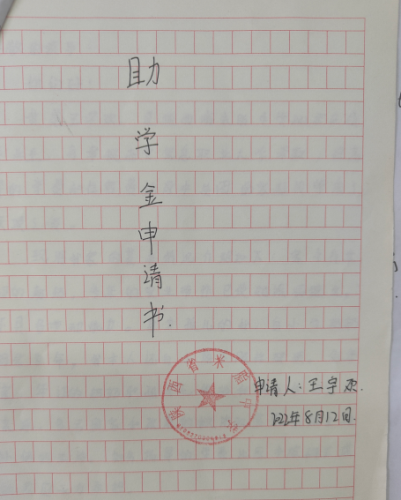 助学金申请书.
申请人:王宇杰.
2022年8月12日.